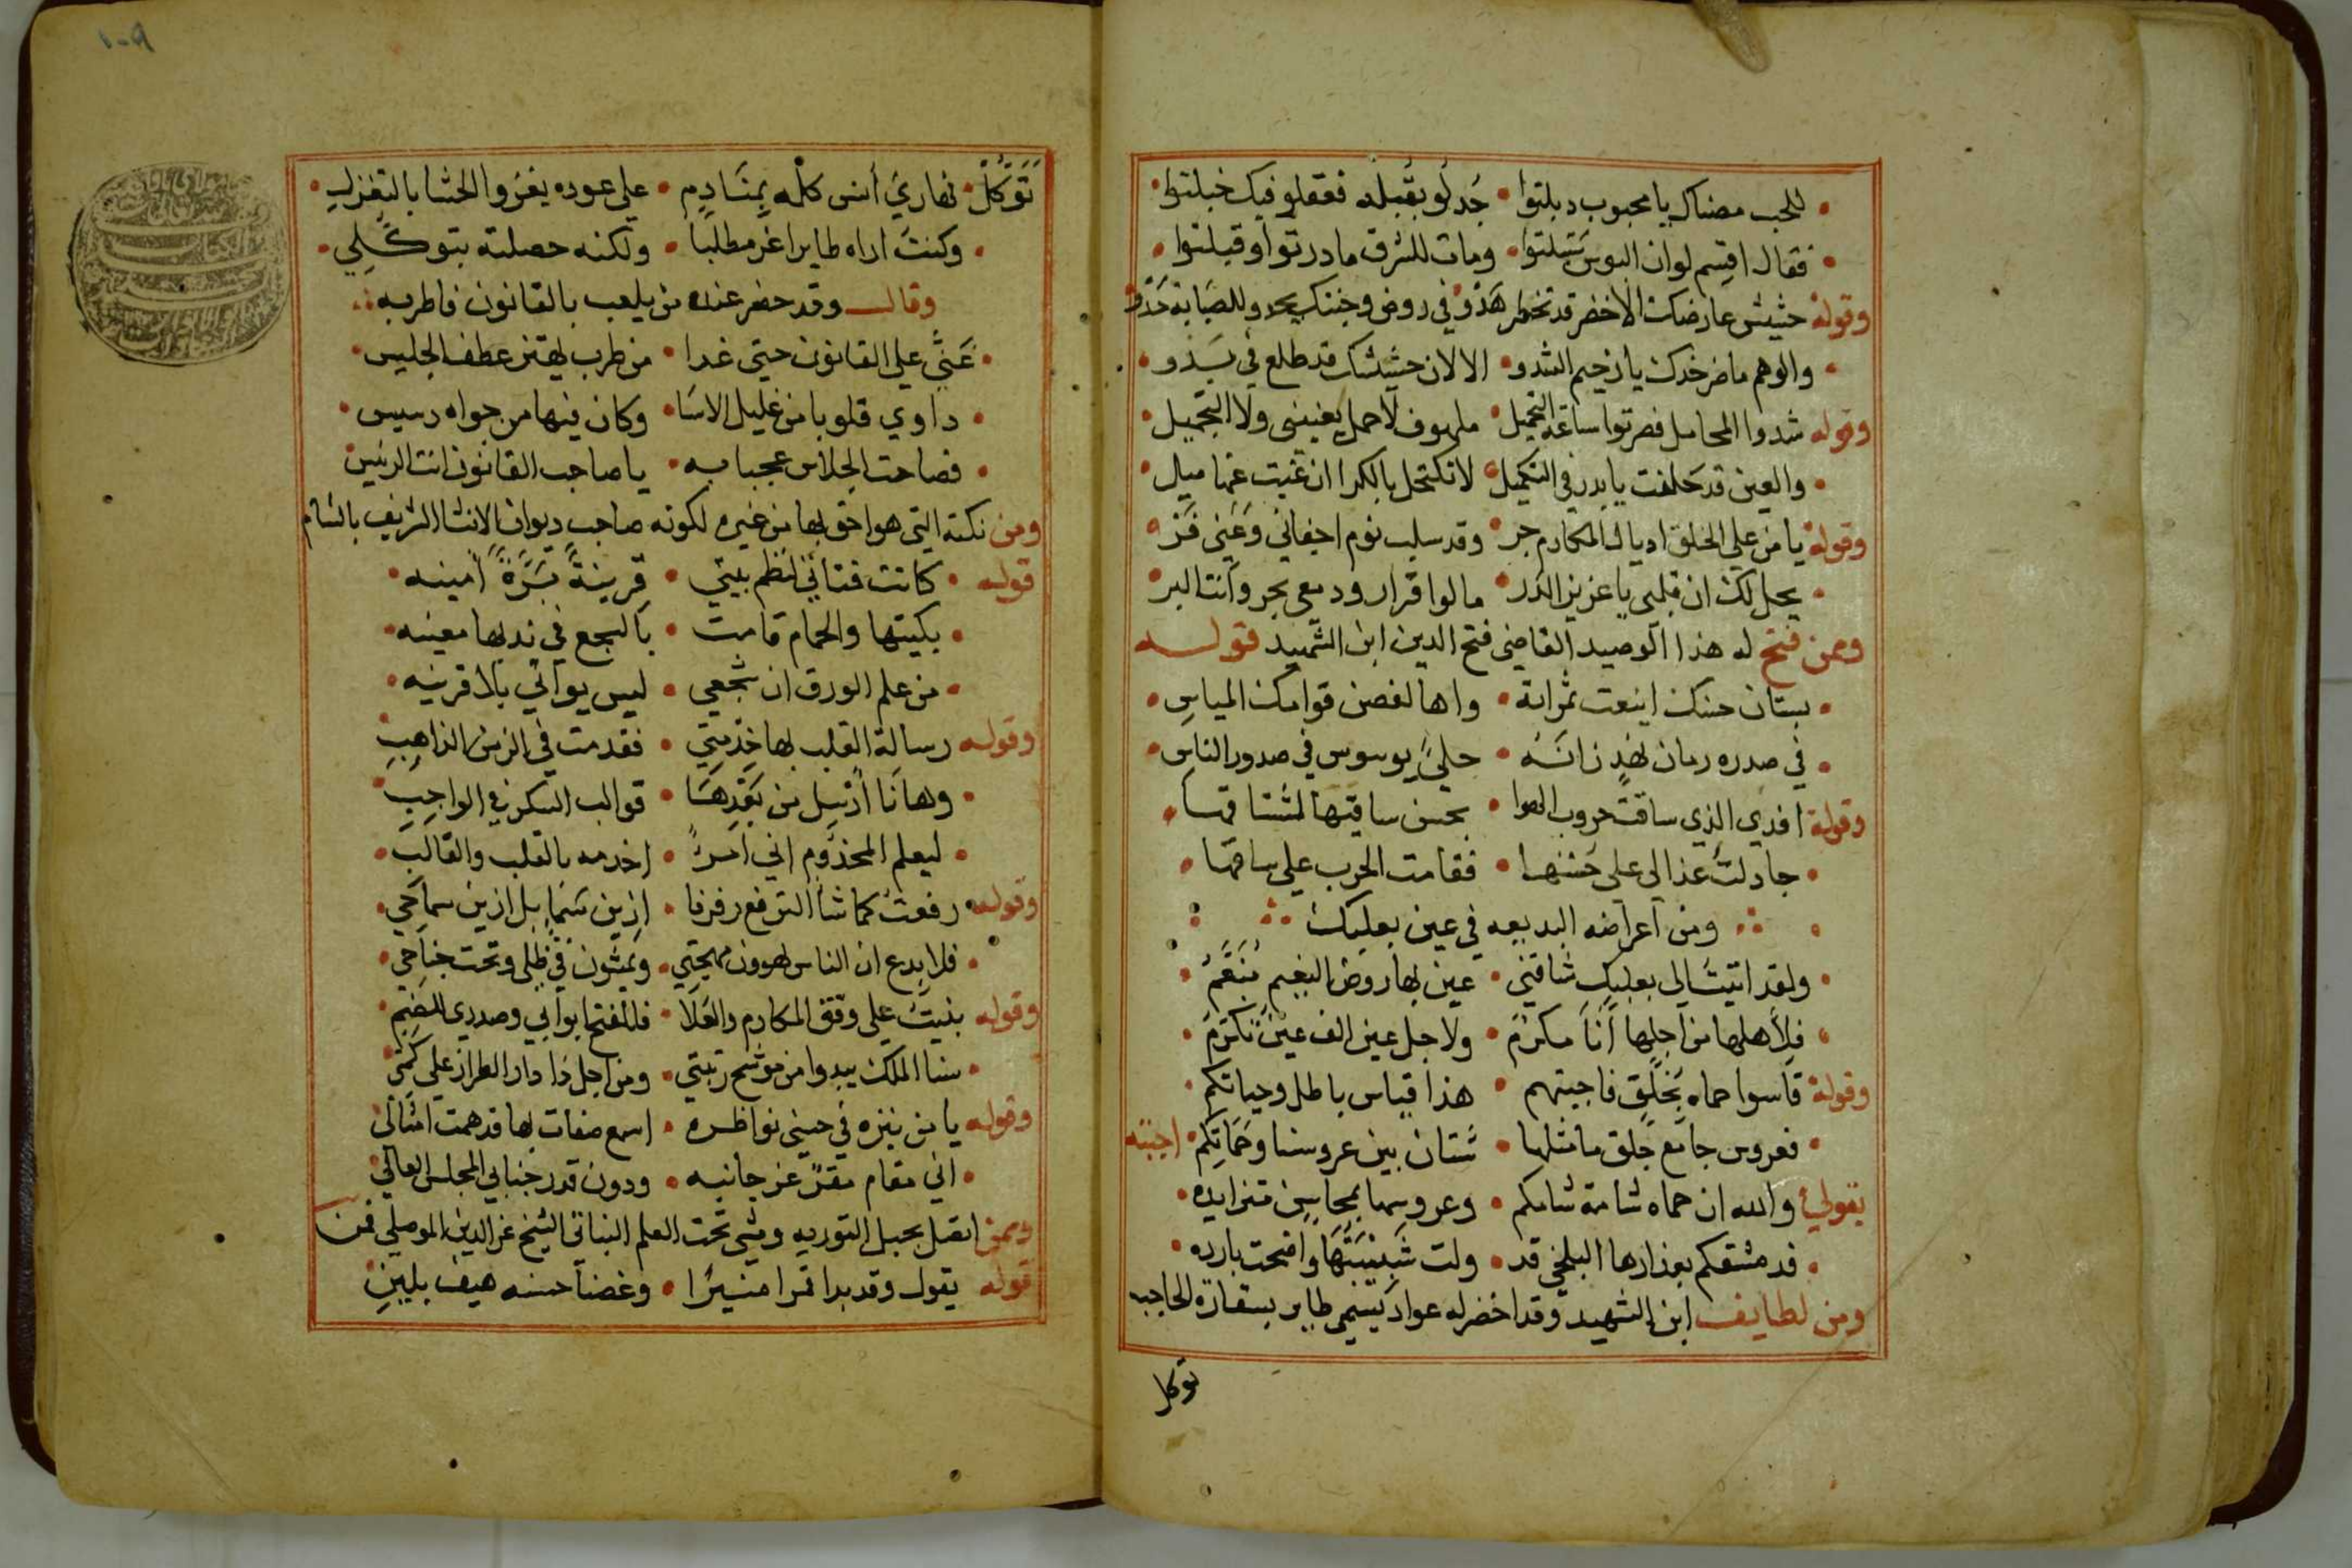 للحب مضناك يا محبوب دبلتوا • جد لو بقبله فعقلو فيك خبلتوا
فقال اقسم لو ان البوس تبلتوا • ومات للشرق ما درتوا وقبلتوا
وقوله حشيش عارضك الاخضر قد تخطر هذو • في روض وجنتك يحدو للصبابة حدو
والوهم ما ضر خدك يا رخيم الشدو • الا لان حشيشك قد طلع في بدو
وقوله شدوا المحامل فصرتوا ساعة التحميل • ملهوف لا حمل يغنيني ولا التجميل
والعين قد حلفت يا بدر في التكميل • لا تكتحل بالكرا ان غبت عنها ميل
وقوله يا من على الخلق اديال المكارم جر • وقد سلب نوم اجفاني وعني فر
يحل لك ان قلبي يا عزيز الدر • ما لوا قرار ودمعي بحر وانت البر
وممن فتح له هذا الوصيد القاضي فتح الدين ابن الشهيد قوله
بستان حسنك اينعت ثمراته • واها لغصن قوامك المياس
في صدره رمان نهد زانه • حلي يوسوس في صدور الناس
وقوله افدي الذي ساقت حروب الهوا • بحسن ساقيها لمشتاقها
جادلت عذالي على حسنها • فقامت الحرب على ساقها
ومن اعراضه البديعه في عين بعلبك
ولقد اتيت الى بعلبك شاقني • عين بها روض النعيم منعم
فلاهلها من اجلها انا مكرم • ولاجل عين الف عين تكرم
وقوله قاسوا حماه بجلق فاجبتهم • هذا قياس باطل وحياتكم
فعروس جامع جلق ما مثلها • شتان بين عروسنا وحماتكم • اجبته
بقولي والله ان حماه شامة شامكم • وعروسها بمحاسن متزايده
قد مشقكم بعذارها البلخي قد • ولت شبيبتها واضحت بارده
ومن لطايف ابن الشهيد وقد احضر له عواد يسمى طاير بسفارة الحاجب
توكل
١٠٩
توكل • نهاري أنس كله بمنادم • على عوده يغزوا الحشا بالتغزل
وكنت اراه طايرا عز مطلبا • ولكنه حصلته بتوكلي
وقال وقد حضر عنده من يلعب بالقانون فاطربه
غنى على القانون حتى غدا • من طرب يهتز عطف الجليس
داوي قلوبا من غليل الاسا • وكان فيها من جواه رسيس
فصاحت الجلاس عجبا به • يا صاحب القانون انت الرئيس
ومن نكته التي هو احق بها من غيره لكونه صاحب ديوان الانشا الشريف بالشام
قوله • كانت فتاتي لنظم بيتي • قرينة برة امينه
بكيتها والحمام قامت • بالسجع في ندبها معينه
من علم الورق ان سجعي • ليس يواتي بلا قرينه
وقوله رسالة القلب بها خدمتي • فقدمت في الزمن الذاهب
وها نا ارسل من بعدها • قوالب السكر في الواجب
ليعلم المخدوم اني امرؤ • اخدمه بالقلب والقالب
وقوله رفعت كما شأ الترفع رفرفا • ازين سما بل ازين سماحي
فلا بدع ان الناس يهوون مهجتي • ويمشون في ظلي وتحت جناحي
وقوله بنيت على وفق المكارم والعلا • فللفتح ابوابي وصدري للضم
سنا الملك يبدوا من موشح رتبتي • ومن اجل ذا دار الطراز على كمي
وقوله يا من ينزه في حسني نواظره • اسمع صفات بها قد همت امثالي
اني مقام مقر عز جانبه • ودون قدر جنابي المجلس العالي
وممن اتصل بحبل التوريه ومشى تحت العلم النباتي الشيخ عز الدين الموصلي فمن
قوله يقول وقد بدا قمرا منيرا • وغصنا حسنه هيف بلين